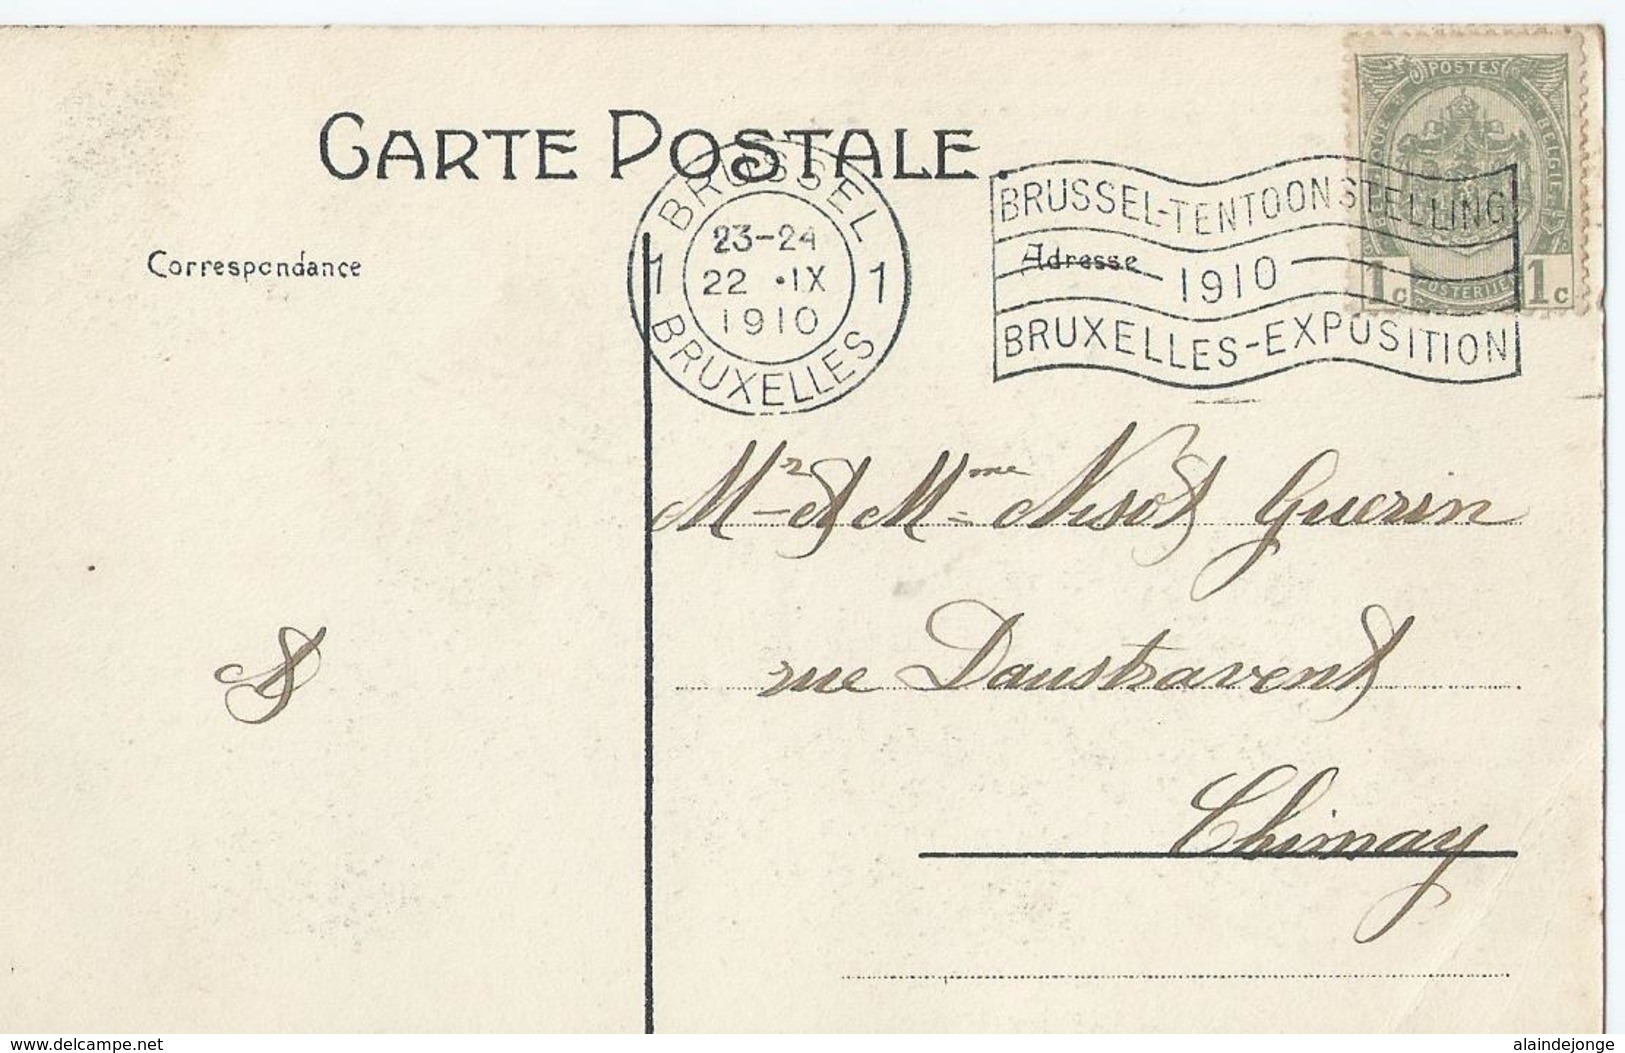 CARTE POSTALE
Correspondance
Adresse
BRUSSEL
23-24
22 · IX
1910
1 1
BRUXELLES
BRUSSEL-TENTOONSTELLING
1910
BRUXELLES-EXPOSITION
POSTES
BELGIE
POSTERIJEN
1c 1c
Mr et Mme Nisot Guerin
rue Daustravent
Chimay
www.delcampe.net
alaindejonge